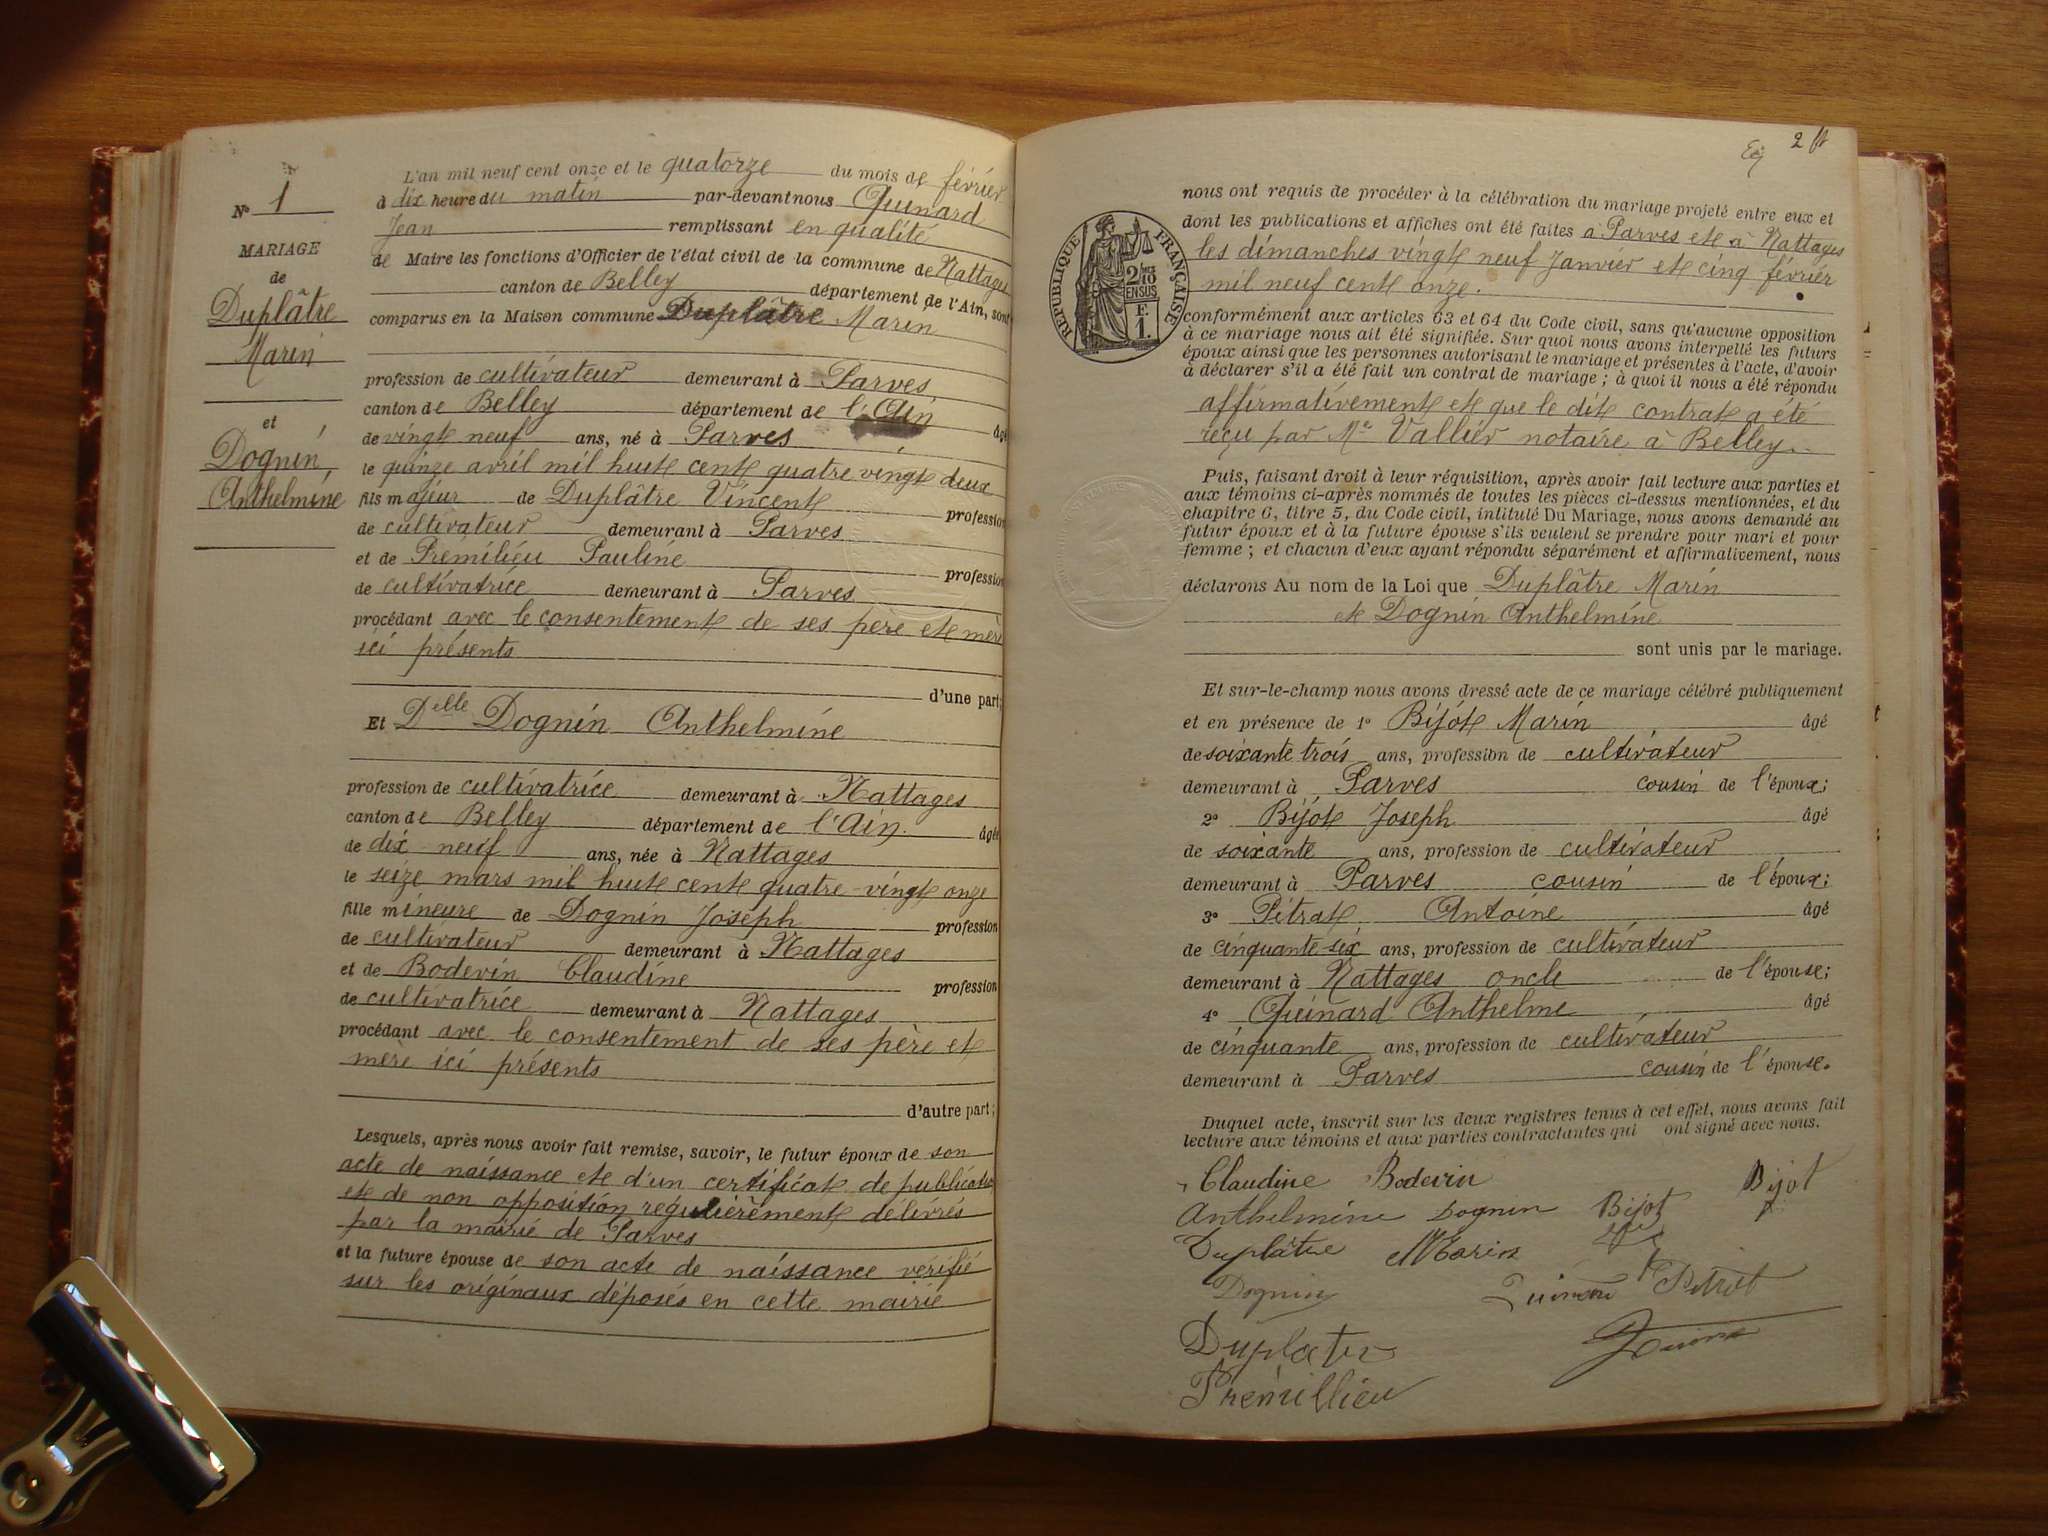 N° 1
MARIAGE
de
Duplâtre
Marin
et
Dognin
Anthelmine
L'an mil neuf cent onze et le quatorze du mois de février
à dix heure du matin par-devant nous Quinard
Jean remplissant en qualité
de Maire les fonctions d'Officier de l'état civil de la commune de Nattages
canton de Belley département de l'Ain, sont
comparus en la Maison commune Duplâtre Marin
profession de cultivateur demeurant à Parves
canton de Belley département de l'Ain âgé
de vingt neuf ans, né à Parves
le quinze avril mil huit cent quatre vingt deux
fils majeur de Duplâtre Vincent profession
de cultivateur demeurant à Parves
et de Prémilieu Pauline profession
de cultivatrice demeurant à Parves
procédant avec le consentement de ses père et mère
ici présents
d'une part;
Et Delle Dognin Anthelmine
profession de cultivatrice demeurant à Nattages
canton de Belley département de l'Ain. âgée
de dix neuf ans, née à Nattages
le seize mars mil huit cent quatre-vingt onze
fille mineure de Dognin Joseph profession
de cultivateur demeurant à Nattages
et de Bodevin Claudine profession
de cultivatrice demeurant à Nattages
procédant avec le consentement de ses père et
mère ici présents
d'autre part;
Lesquels, après nous avoir fait remise, savoir, le futur époux de son
acte de naissance et d'un certificat de publication
et de non opposition regulièrement délivrés
par la mairie de Parves
et la future épouse de son acte de naissance vérifié
sur les originaux déposés en cette mairie
2
nous ont requis de procéder à la célébration du mariage projeté entre eux et
dont les publications et affiches ont été faites à Parves et à Nattages
les dimanches vingt neuf Janvier et cinq février
mil neuf cent onze.
RÉPUBLIQUE FRANÇAISE
2/10
EN SUS
F.
1.
conformément aux articles 63 et 64 du Code civil, sans qu'aucune opposition
à ce mariage nous ait été signifiée. Sur quoi nous avons interpellé les futurs
époux ainsi que les personnes autorisant le mariage et présentes à l'acte, d'avoir
à déclarer s'il a été fait un contrat de mariage; à quoi il nous a été répondu
affirmativement et que le dit contrat a été
reçu par Me Vallier notaire à Belley.
Puis, faisant droit à leur réquisition, après avoir fait lecture aux parties et
aux témoins ci-après nommés de toutes les pièces ci-dessus mentionnées, et du
chapitre 6, titre 5, du Code civil, intitulé Du Mariage, nous avons demandé au
futur époux et à la future épouse s'ils veulent se prendre pour mari et pour
femme; et chacun d'eux ayant répondu séparément et affirmativement, nous
déclarons Au nom de la Loi que Duplâtre Marin
et Dognin Anthelmine
sont unis par le mariage.
Et sur-le-champ nous avons dressé acte de ce mariage célébré publiquement
et en présence de 1° Bijot Marin âgé
de soixante trois ans, profession de cultivateur
demeurant à Parves cousin de l'époux;
2° Bijot Joseph âgé
de soixante ans, profession de cultivateur
demeurant à Parves cousin de l'époux;
3° Pitrat Antoine âgé
de cinquante-six ans, profession de cultivateur
demeurant à Nattages oncle de l'épouse;
4° Quinard Anthelme âgé
de cinquante ans, profession de cultivateur
demeurant à Parves cousin de l'épouse.
Duquel acte, inscrit sur les deux registres tenus à cet effet, nous avons fait
lecture aux témoins et aux parties contractantes qui ont signé avec nous.
Claudine Bodevin Bijot
Anthelmine Dognin Bijot
Duplâtre Marin
Dognin Pitrat
Duplatre
Prémillieu